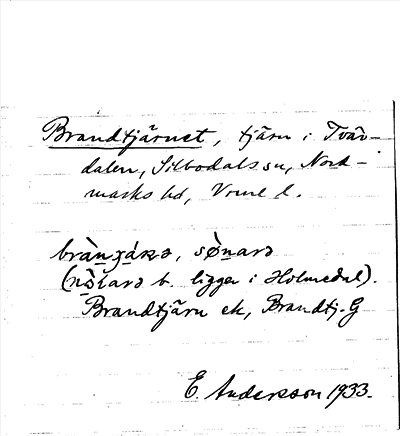 Brandtjärnet, tjärn i Tvär-
dalen, Silbodals sn, Nord-
marks hd, Vrml l.
(nò̱ɫarə b. ligger i Holmedal).
Brandtjärn ek, Brandtj. G
E. Andersson 1933.